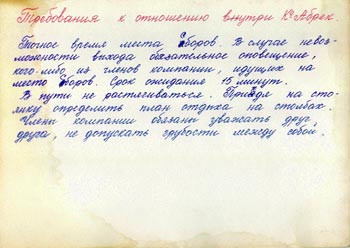 Требования к отношению внутри Кº Абрек.
Точное время места сборов. В случае невоз-
можности выхода обязательное оповещение,
кого-либо из членов компании, идущих на
место сборов. Срок ожидания 15 минут.
В пути не растягиваться. Придя на сто-
янку определить план отдыха на столбах.
Члены компании обязаны уважать друг
друга, не допускать грубости между собой.